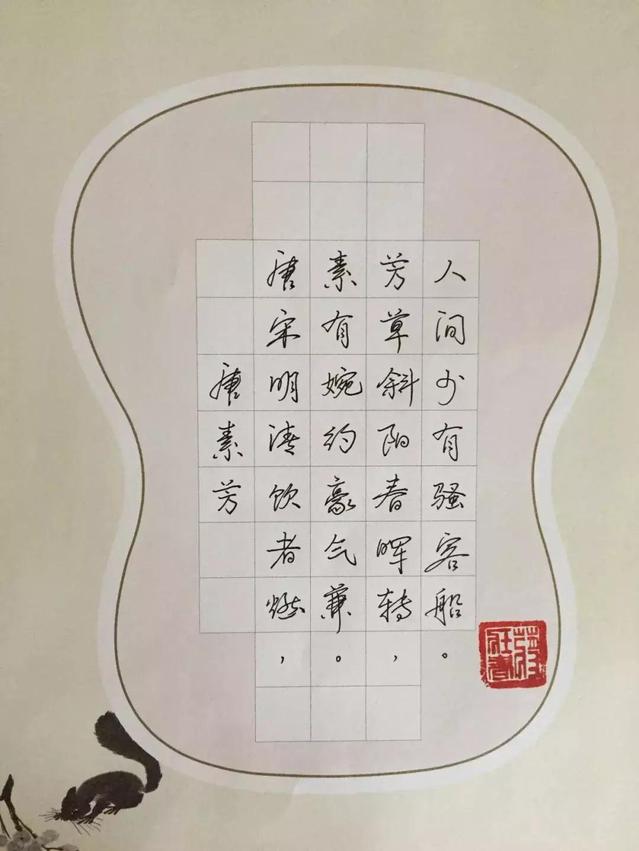 唐素芳
唐宋明清饮者燃，
素有婉约豪气兼。
芳草斜阳春晖转，
人间少有骚客船。